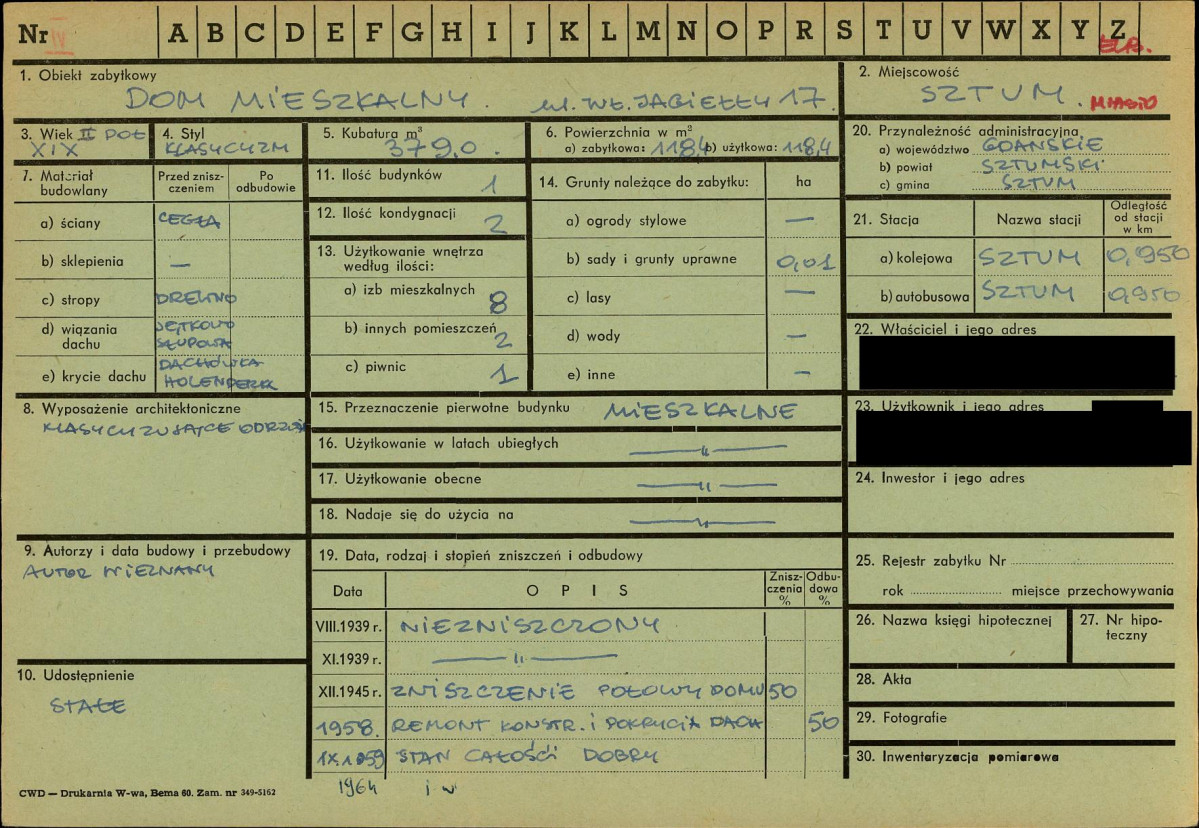 Nr IV A B C D E F G H I J K L M N O P R S T U V W X Y Z
1. Obiekt zabytkowy
DOM MIESZKALNY. ul. WŁ. JAGIEŁŁY 17.
2. Miejscowość
SZTUM. MIASTO
3. Wiek II POŁ
XIX
4. Styl
KLASYCYZM
5. Kubatura m³
379,0.
6. Powierzchnia w m²
a) zabytkowa: 118,4 b) użytkowa: 118,4
20. Przynależność administracyjna
a) województwo GDAŃSKIE
b) powiat SZTUMSKI
c) gmina SZTUM
7. Materiał budowlany
Przed zniszczeniem
Po odbudowie
a) ściany CEGŁA
b) sklepienia —
c) stropy DREWNO
d) wiązania dachu JĘTKOWO SŁUPOWA
e) krycie dachu DACHÓWKA HOLENDERK
11. Ilość budynków 1
12. Ilość kondygnacji 2
13. Użytkowanie wnętrza
według ilości:
a) izb mieszkalnych 8
b) innych pomieszczeń 2
c) piwnic 1
14. Grunty należące do zabytku: ha
a) ogrody stylowe —
b) sady i grunty uprawne 0,01
c) lasy —
d) wody —
e) inne —
21. Stacja Nazwa stacji Odległość od stacji w km
a) kolejowa SZTUM 0,950
b) autobusowa SZTUM 0,950
22. Właściciel i jego adres
8. Wyposażenie architektoniczne
KLASYCYZUJĄCE ODRZWI
15. Przeznaczenie pierwotne budynku MIESZKALNE
16. Użytkowanie w latach ubiegłych —"—
17. Użytkowanie obecne —"—
18. Nadaje się do użycia na —"—
23. Użytkownik i jego adres
24. Inwestor i jego adres
9. Autorzy i data budowy i przebudowy
AUTOR NIEZNANY
19. Data, rodzaj i stopień zniszczeń i odbudowy
Data OPIS Zniszczenia % Odbudowa %
VIII.1939 r. NIEZNISZCZONY
XI.1939 r. —"—
XII.1945 r. ZNISZCZENIE POŁOWY DOMU 50
1958. REMONT KONSTR. i POKRYCIA DACH 50
IX.1959 STAN CAŁOŚCI DOBRY
1964 i w
25. Rejestr zabytku Nr
rok miejsce przechowywania
26. Nazwa księgi hipotecznej
27. Nr hipoteczny
10. Udostępnienie
STAŁE
28. Akta
29. Fotografie
30. Inwentaryzacja pomiarowa
CWD — Drukarnia W-wa, Bema 60. Zam. nr 349-5162